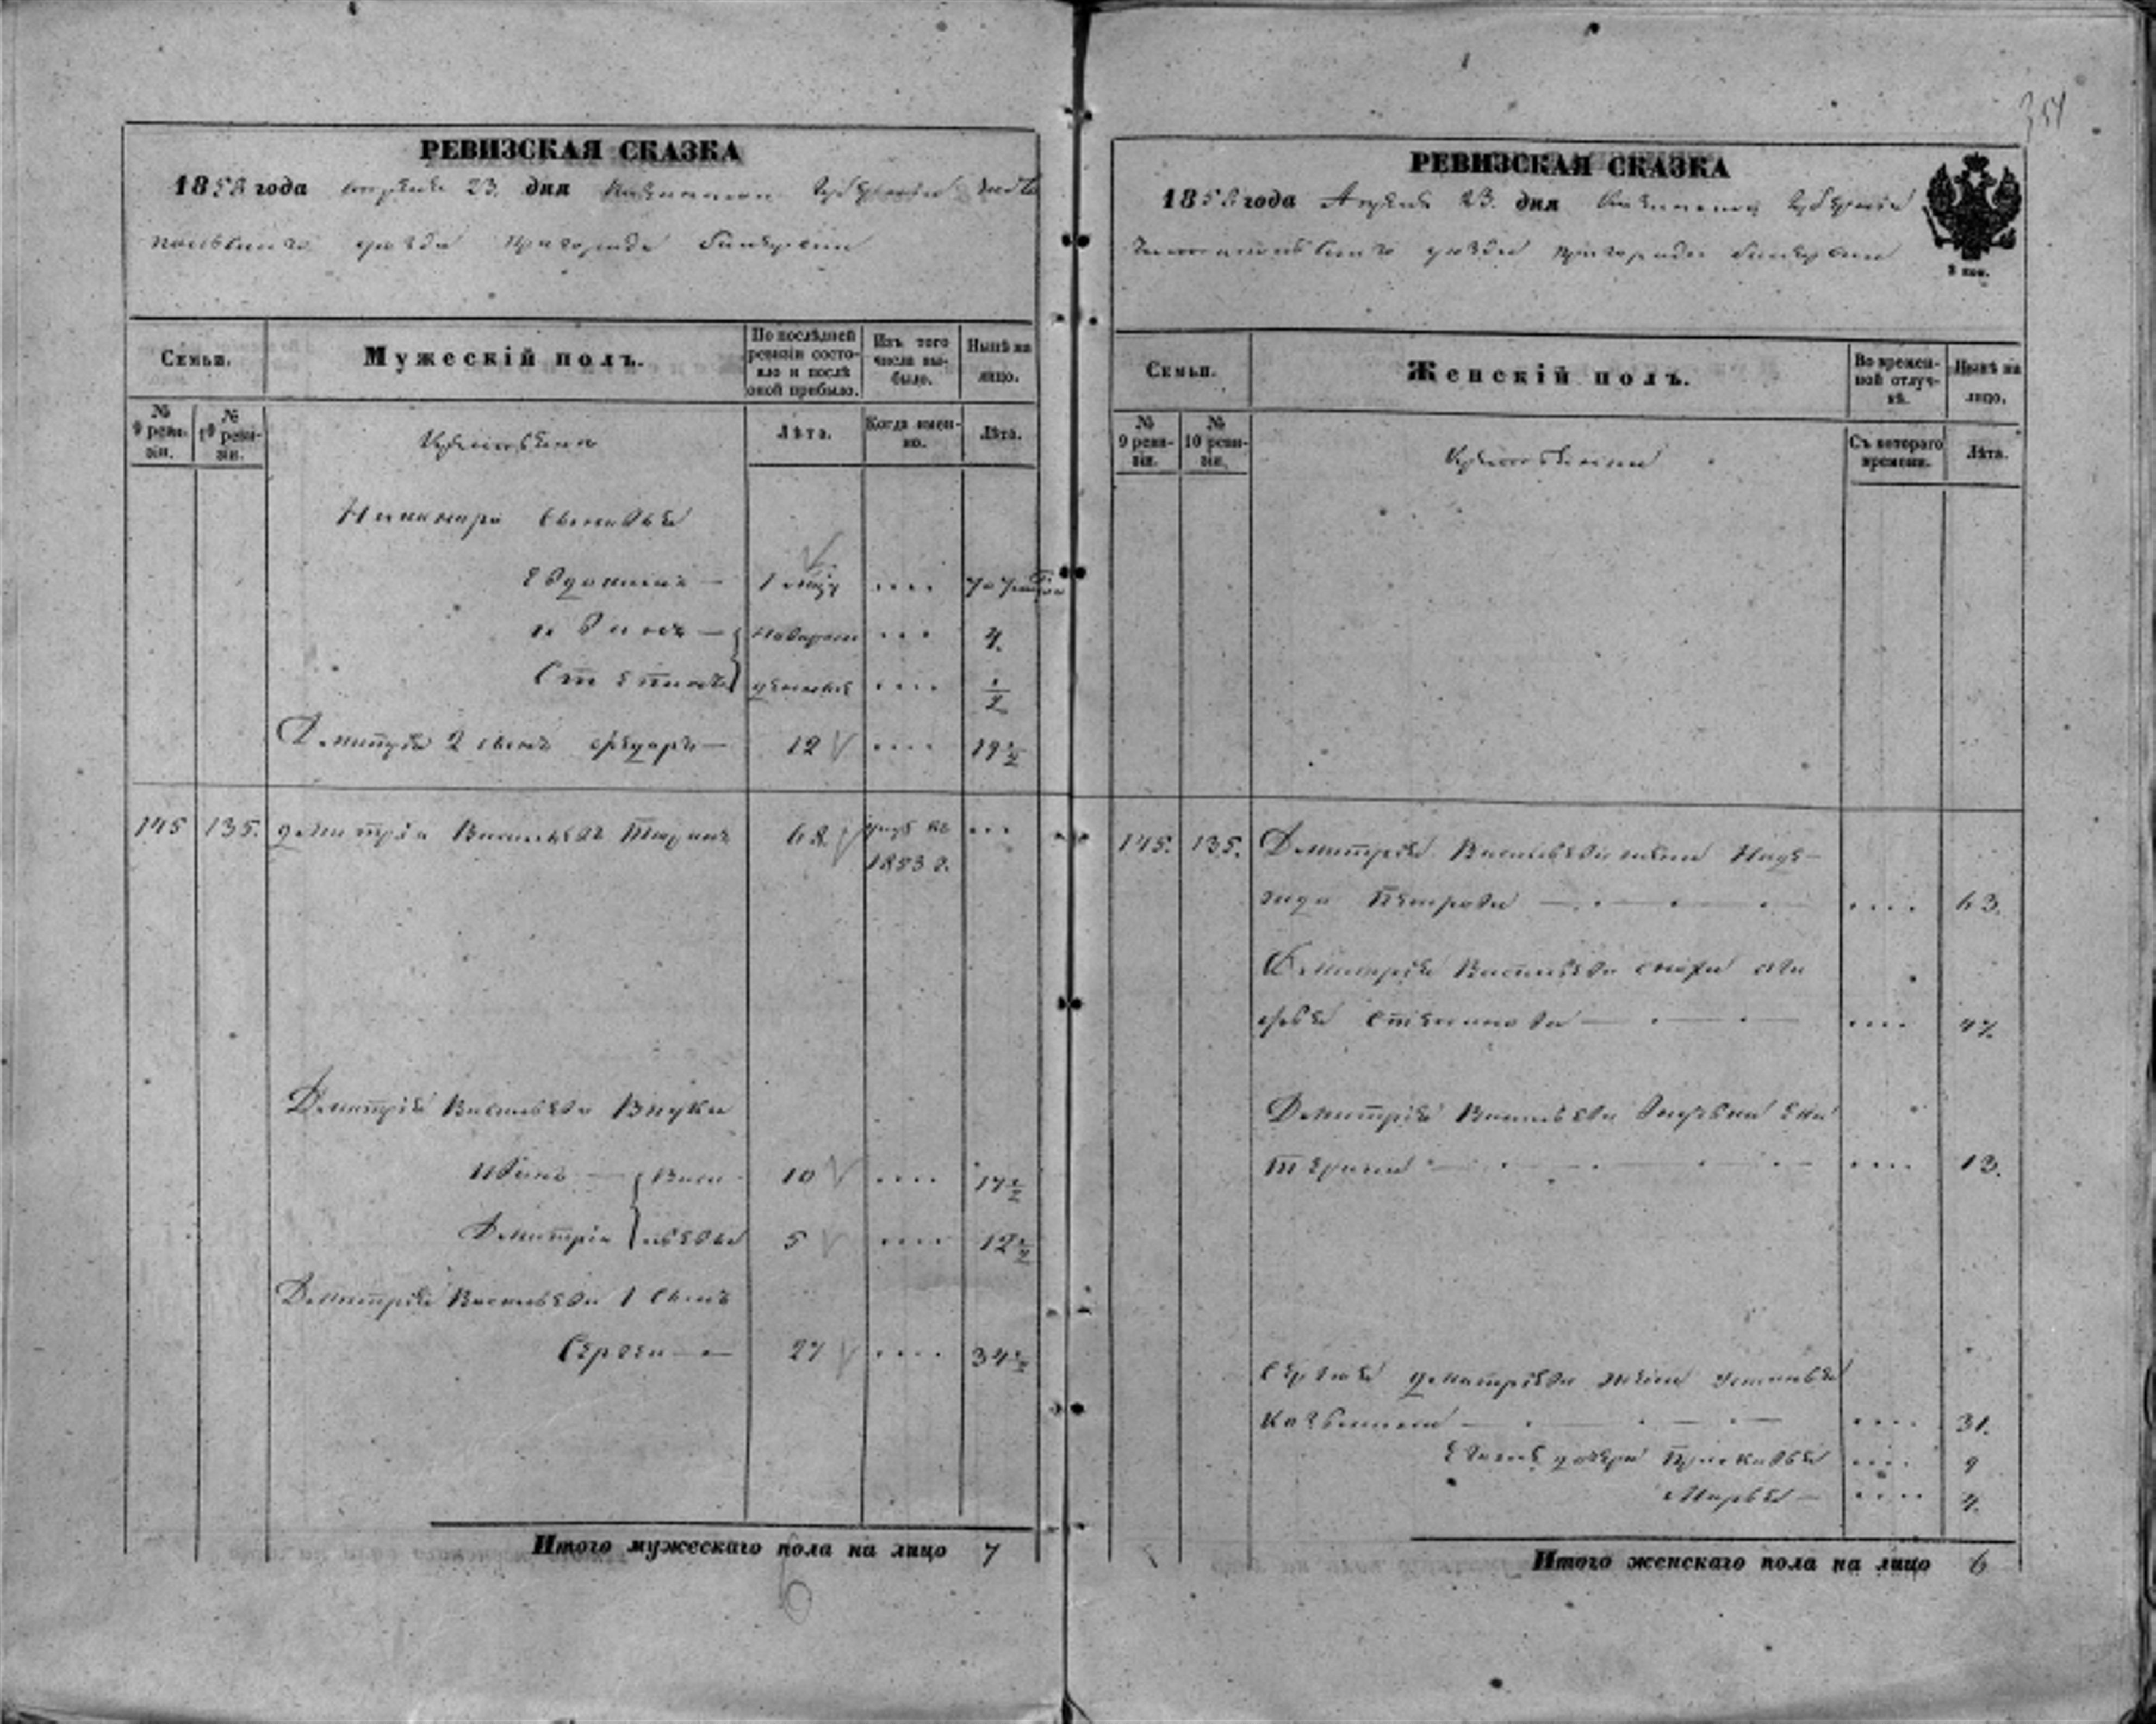 РЕВИЗСКАЯ СКАЗКА
1858 года апреля 23. дня Казанской Губернии Чисто
польскаго уезда пригорода Билярска
Семьи.
Мужескій полъ.
По послѣдней ревизіи состояло и послѣ оной прибыло.
Изъ того числа выбыло.
Нынѣ на лицо.
№ 9 ревизіи.
№ 10 ревизіи.
Лѣта.
Когда именно.
Лѣта.
Никанора сыновья
Евдокимъ —
Иванъ —
Степанъ
4.
1/2
Дмитрія 2 сынъ Федоръ —
12
19 1/2
145
135.
Дмитрій Васильевъ
68
1853 г.
Дмитрія Васильева Внуки
Иванъ — Васи
10
17 1/2
Дмитрій льевы
5
12 1/2
Дмитрія Васильева 1 Сынъ
Сергей —
27
34 1/2
Итого мужескаго пола на лицо 7
6
РЕВИЗСКАЯ СКАЗКА
1858 года Апреля 23. дня Казанской Губерніи
Чистопольскаго уезда пригорода Билярска
3 коп.
Семьи.
Женскій полъ.
Во временной отлучкѣ.
Нынѣ на лицо.
№ 9 ревизіи.
№ 10 ревизіи.
Съ котораго времени.
Лѣта.
145.
135.
Дмитрія Васильева жена Наде-
жда Петрова —
63.
Дмитрія Васильева сноха
Степанова —
47.
Дмитрія Васильева внучька Ека
терина —
13.
Сергея Дмитріева жена
31.
Ихъ дочери Прасковья
9
Марья —
4.
Итого женскаго пола на лицо 6